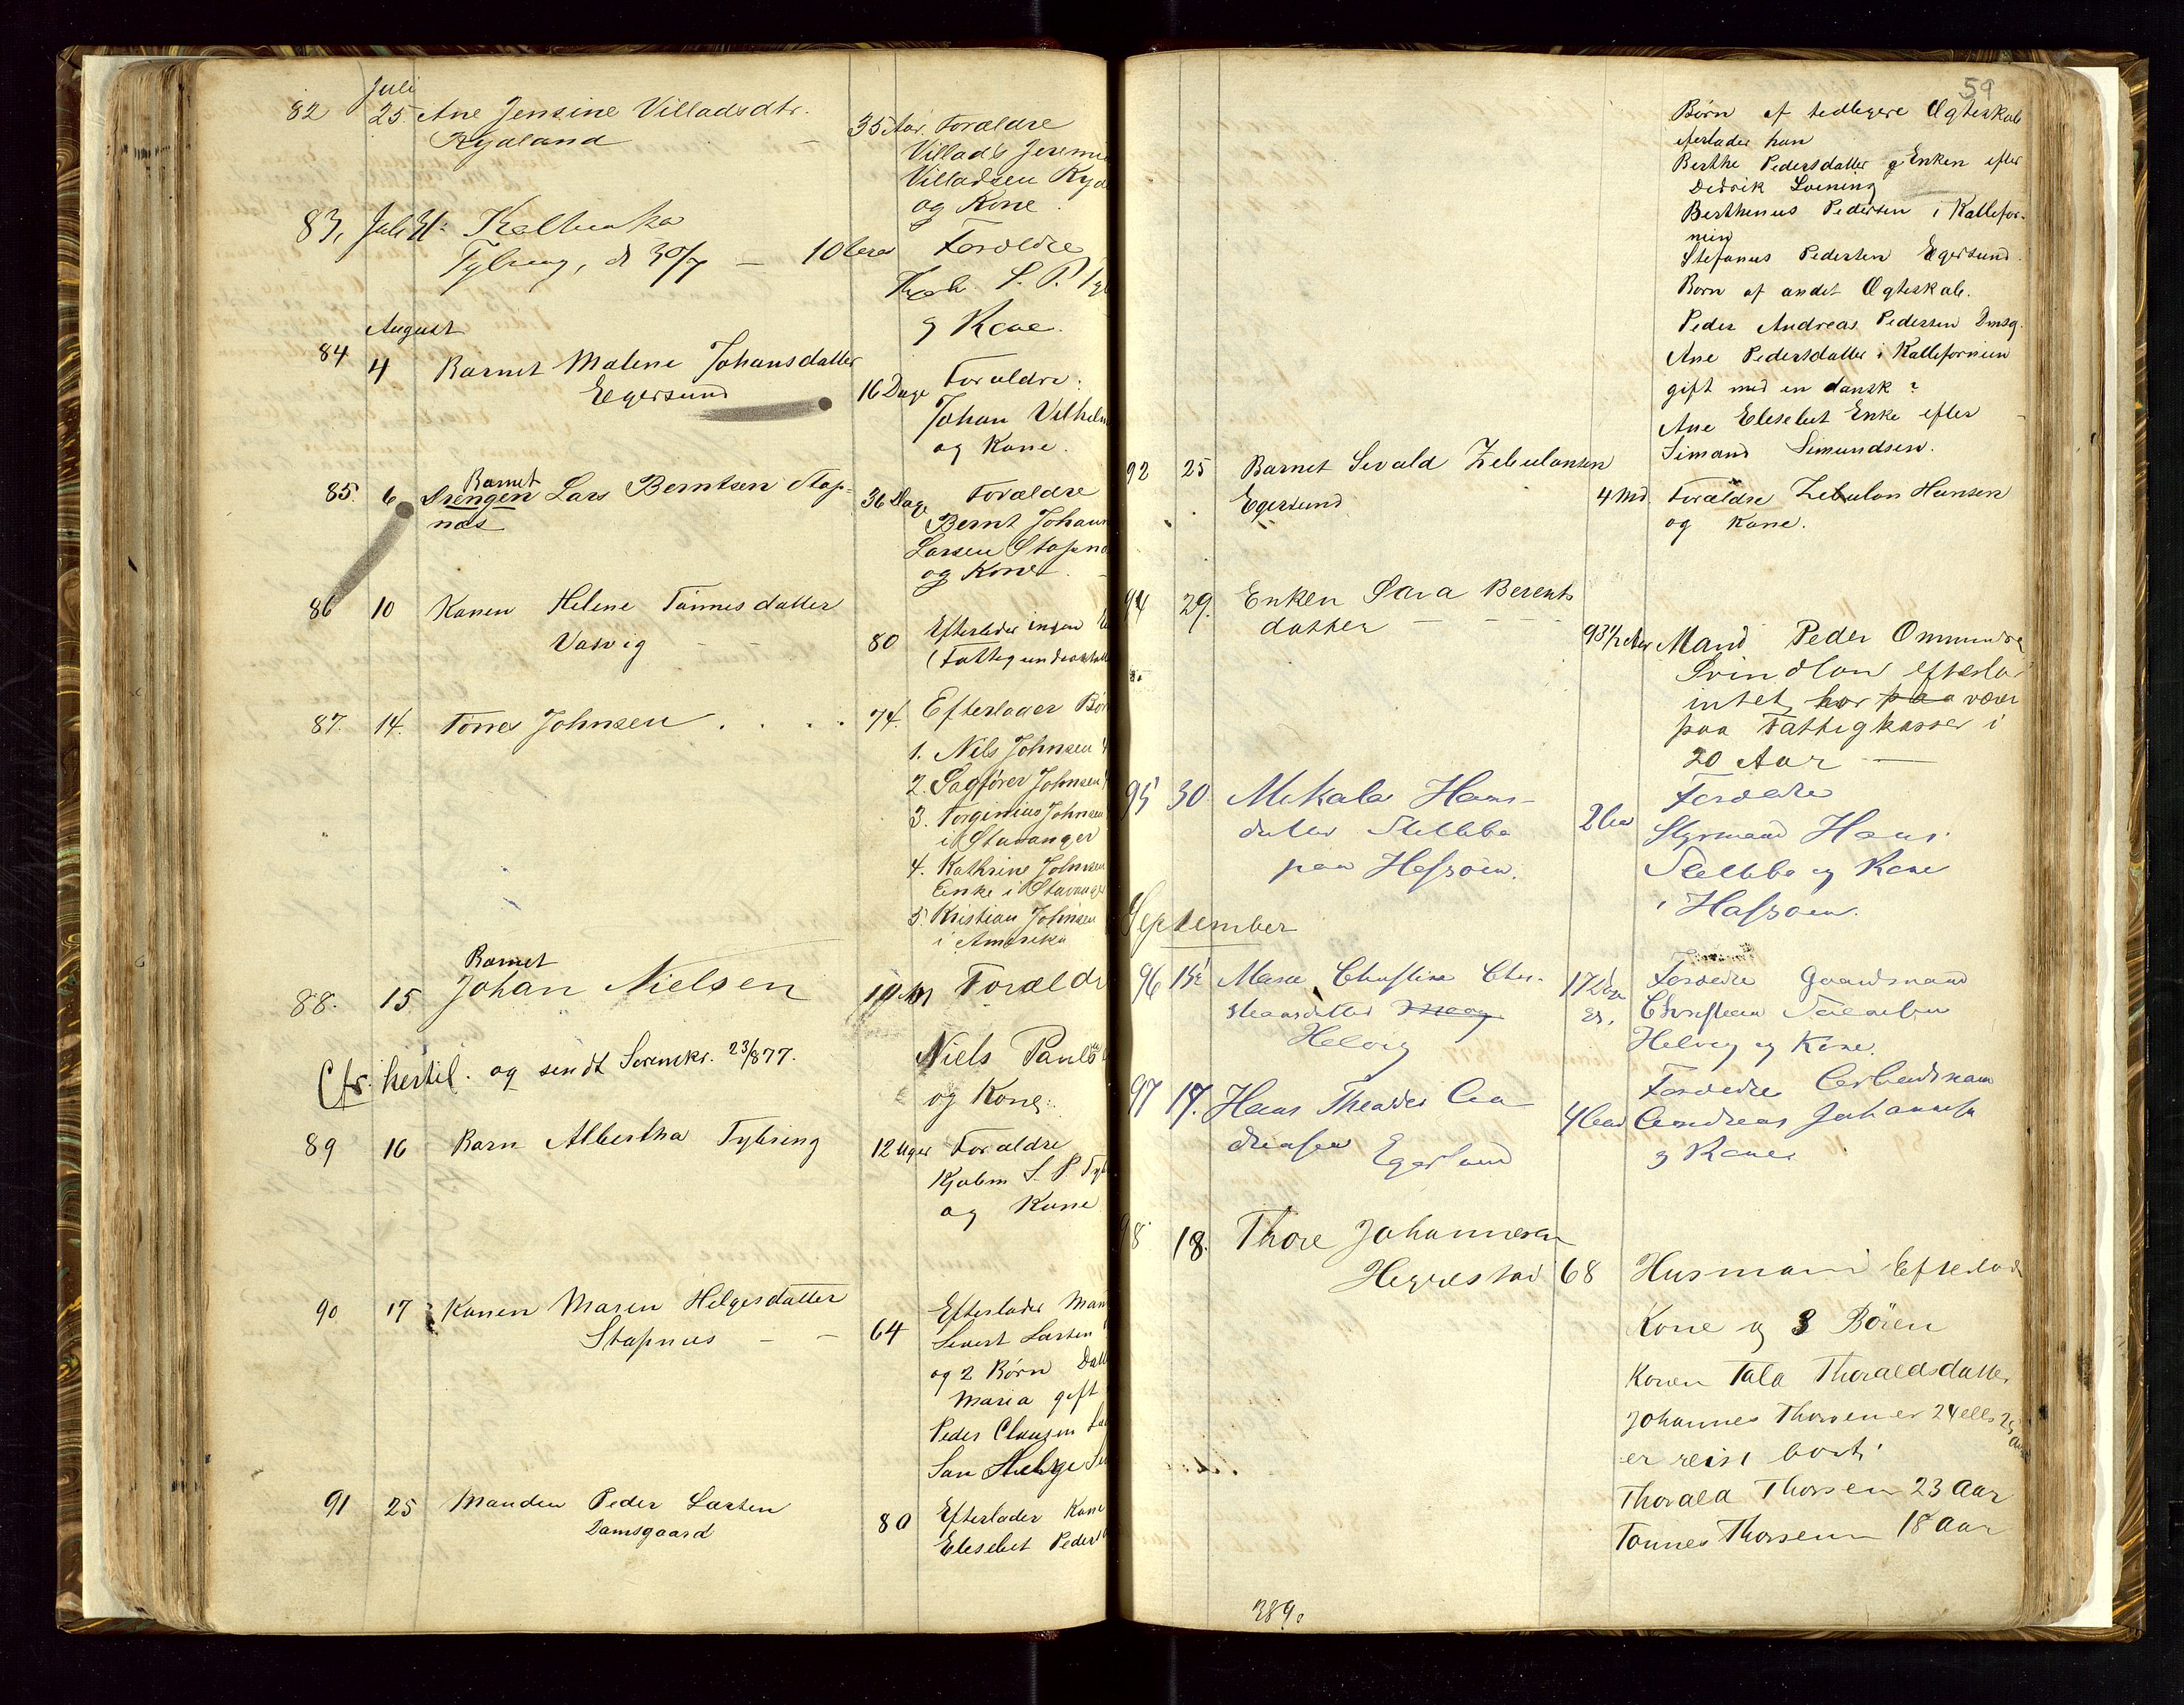 Juli
82 25. Ane Jensine Villadsdtr.
Rydland 35 Aar. Forældre
Villads Jeremi
Villadsen Ryd
og Kone.
83, Juli 31.
Tybring, d 30/7 — 10 Forældre
S. P. Tyb
og Kone.
August
84 4 Barnet Malene Johansdatter
Egersund 16 Dage Forældre:
Johan Vilhelm
og Kone.
Barnet
85. 6 Drengen Lars Berntsen Stap-
næs 36 Dage Forældre
Bernt Johan
Larsen Stapn
og Kone.
86 10 Konen Helene Tönnesdatter
Vadvig — — 80 Efterlader ingen
(Fattigunderstøtt
87. 14. Tönnes Johnsen . . . . 74. Efterlader Bör
1. Nils Johnsen
2. Sagfører Johnsen
3. Torginius Johnsen
i Stavanger
4. Kathrine Johnsen
Enke i Stavanger
5. Kristian Johnsen
i Amerika
Barnet
88. 15 Johan Nielsen 10 M Foreldr
Niels Pauls
og Kone.
Cfr. hertil. og sendt Sorenskr. 23/877.
89 16 Barn Albertha Tybring 12 Uger Forældre
S. P. Tyb
og Kone
90 17 Konen Maren Helgesdatter
Stapnæs — — 64 Efterlader Man
Sivert Larsen
og 2 Börn Datt
Maria gift
Peder Clausen
Søn Helge
91 25 Manden Peder Larsen
Damsgaard 80 Efterlader Kone
Eleselut Peders
59
Börn af tidligere Ægteskab
efterlader han
Berthe Pedersdatter g Enken efter
Didrik Loening
Berthinus Pedersen i Kallefor-
nien
Stefanus Pedersen Egersund.
Born af andet Ægteskab.
Peder Andreas Pedersen Dmsg.
Ane Pedersdatter i Kallefornien
gift med en dansk?
Ane Eleselut Enke efter
Simand Simundsen.
92 25 Barnet Sivald Zebulonsen
Egersund 4 Md. Forældre Zebulon Hansen
og Kone.
94 29. Enken Sara Berents
datter — — — — 93 1/2 Aar Mand Peder Ommunds
Svindlan efterla
intet, har paa vær
paa Fattigkasser i
20 Aar —
95 30 Mikala Hans-
datter Slettebø
paa Hafsøen. 2 Aar Forældre
Styrmand Hans
Slettebø og Kone
i Hafsøen.
September
96 Maren Christine Chri-
stiansdatter
Helvig 17 Dage Forældre Gaardmand
Christian
Helvig og Kone.
97 17. Hans Theodor An
dreasen Egersund 4 Aar Forældre Arbeidsman
Andreas Johannesen
og Kone
98 18. Thore Johannesen
Hegrestad 68 Husmann Efterlad
Kone og 3 Börn
Konen Tala Thoraldsdatter
Johannes Thorsen er 24 ell 25 Aar
er reist bort.
Thorald Thorsen 23 Aar
Tönnes Thorsen 18 Aar
389.